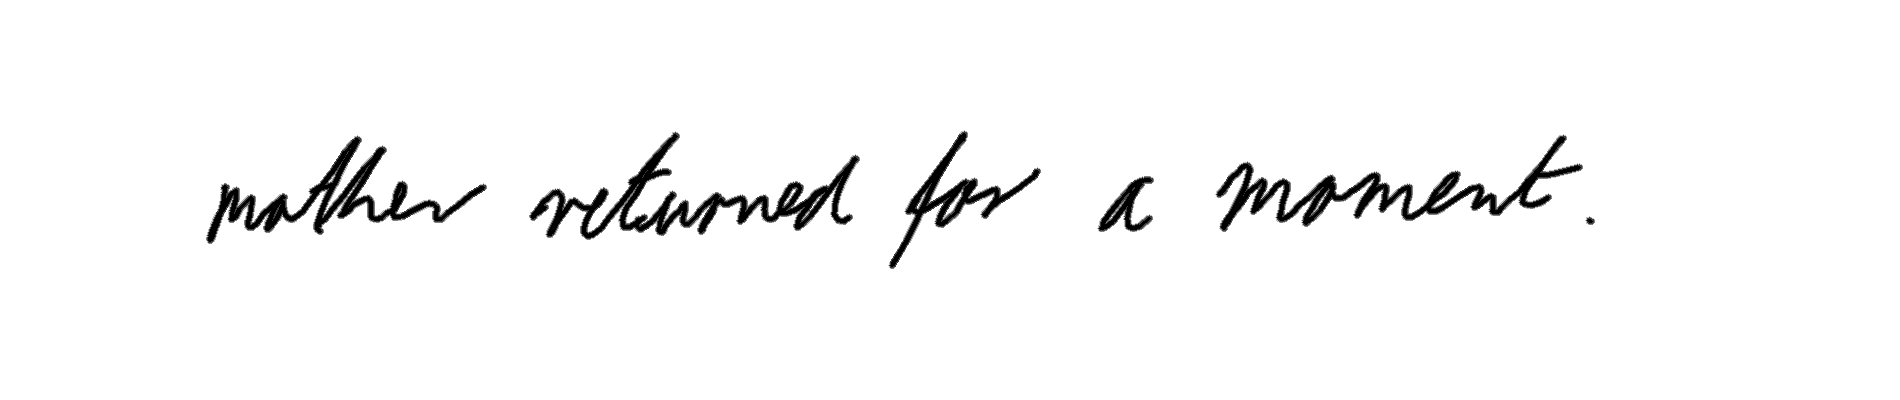 mother returned for a moment.